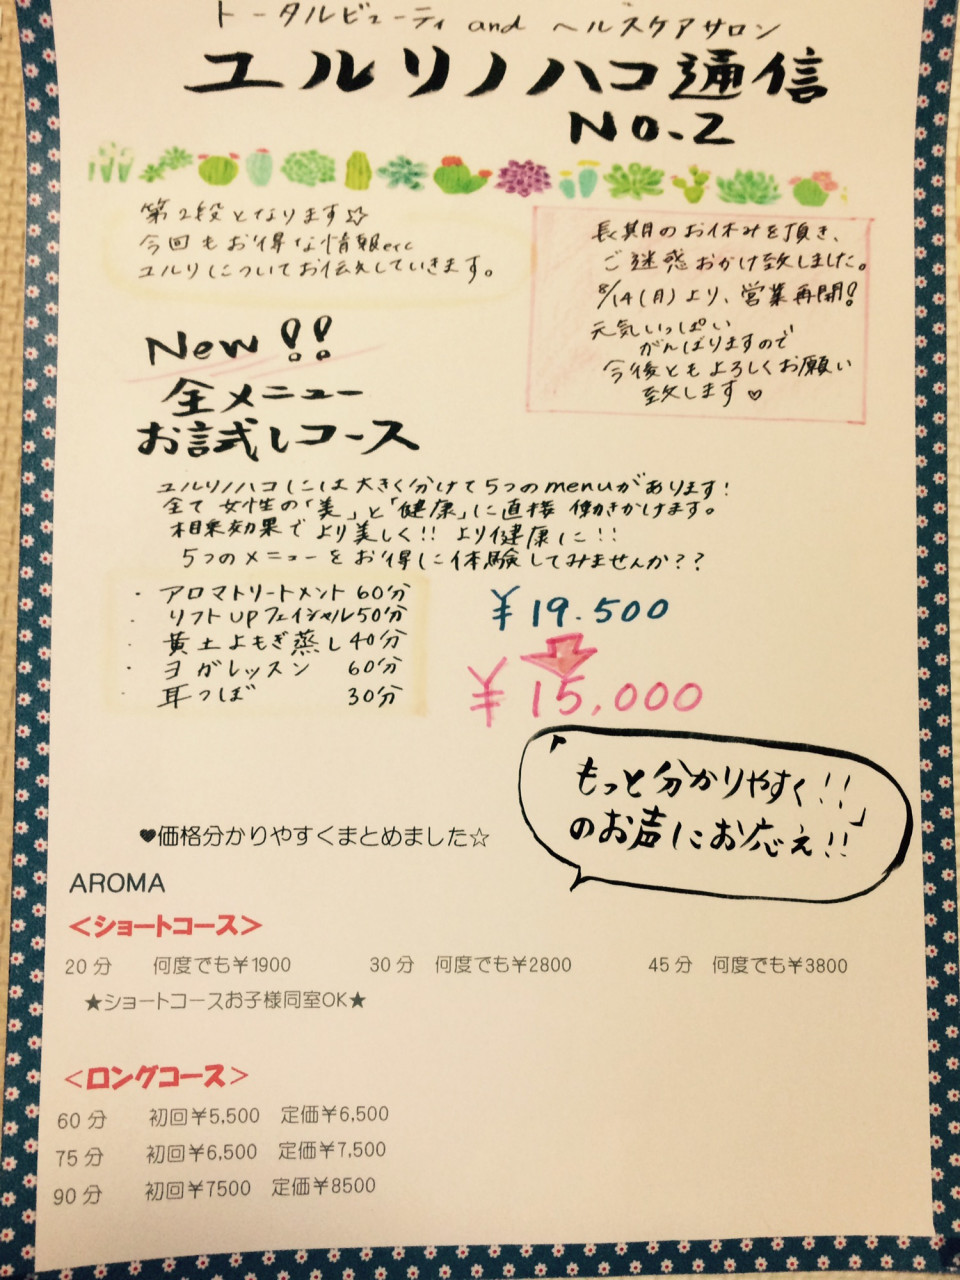 トータルビューティ and ヘルスケアサロン
ユルリノハコ通信
No.2
第2段となります☆
今回もお得な情報etc
ユルリについてお伝えしていきます。
長期のお休みを頂き、
ご迷惑おかけ致しました。
8/14(月)より、営業再開!
元気いっぱい
がんばりますので
今後ともよろしくお願い
致します♡
New!!
全メニュー
お試しコース
ユルリノハコには大きく分けて5つのmenuがあります!
全て女性の「美」と「健康」に直接働きかけます。
相乗効果でより美しく!!より健康に!!
5つのメニューをお得に体験してみませんか??
・アロマトリートメント 60分
・リフトUPフェイシャル50分
・黄土よもぎ蒸し40分
・ヨガレッスン 60分
・耳つぼ 30分
¥19.500
¥15,000
「もっと分かりやすく!!」
のお声にお応え!!
♥価格分かりやすくまとめました☆
AROMA
<ショートコース>
20分 何度でも¥1900 30分 何度でも¥2800 45分 何度でも¥3800
★ショートコースお子様同室OK★
<ロングコース>
60分 初回¥5,500 定価¥6,500
75分 初回¥6,500 定価¥7,500
90分 初回¥7500 定価¥8500